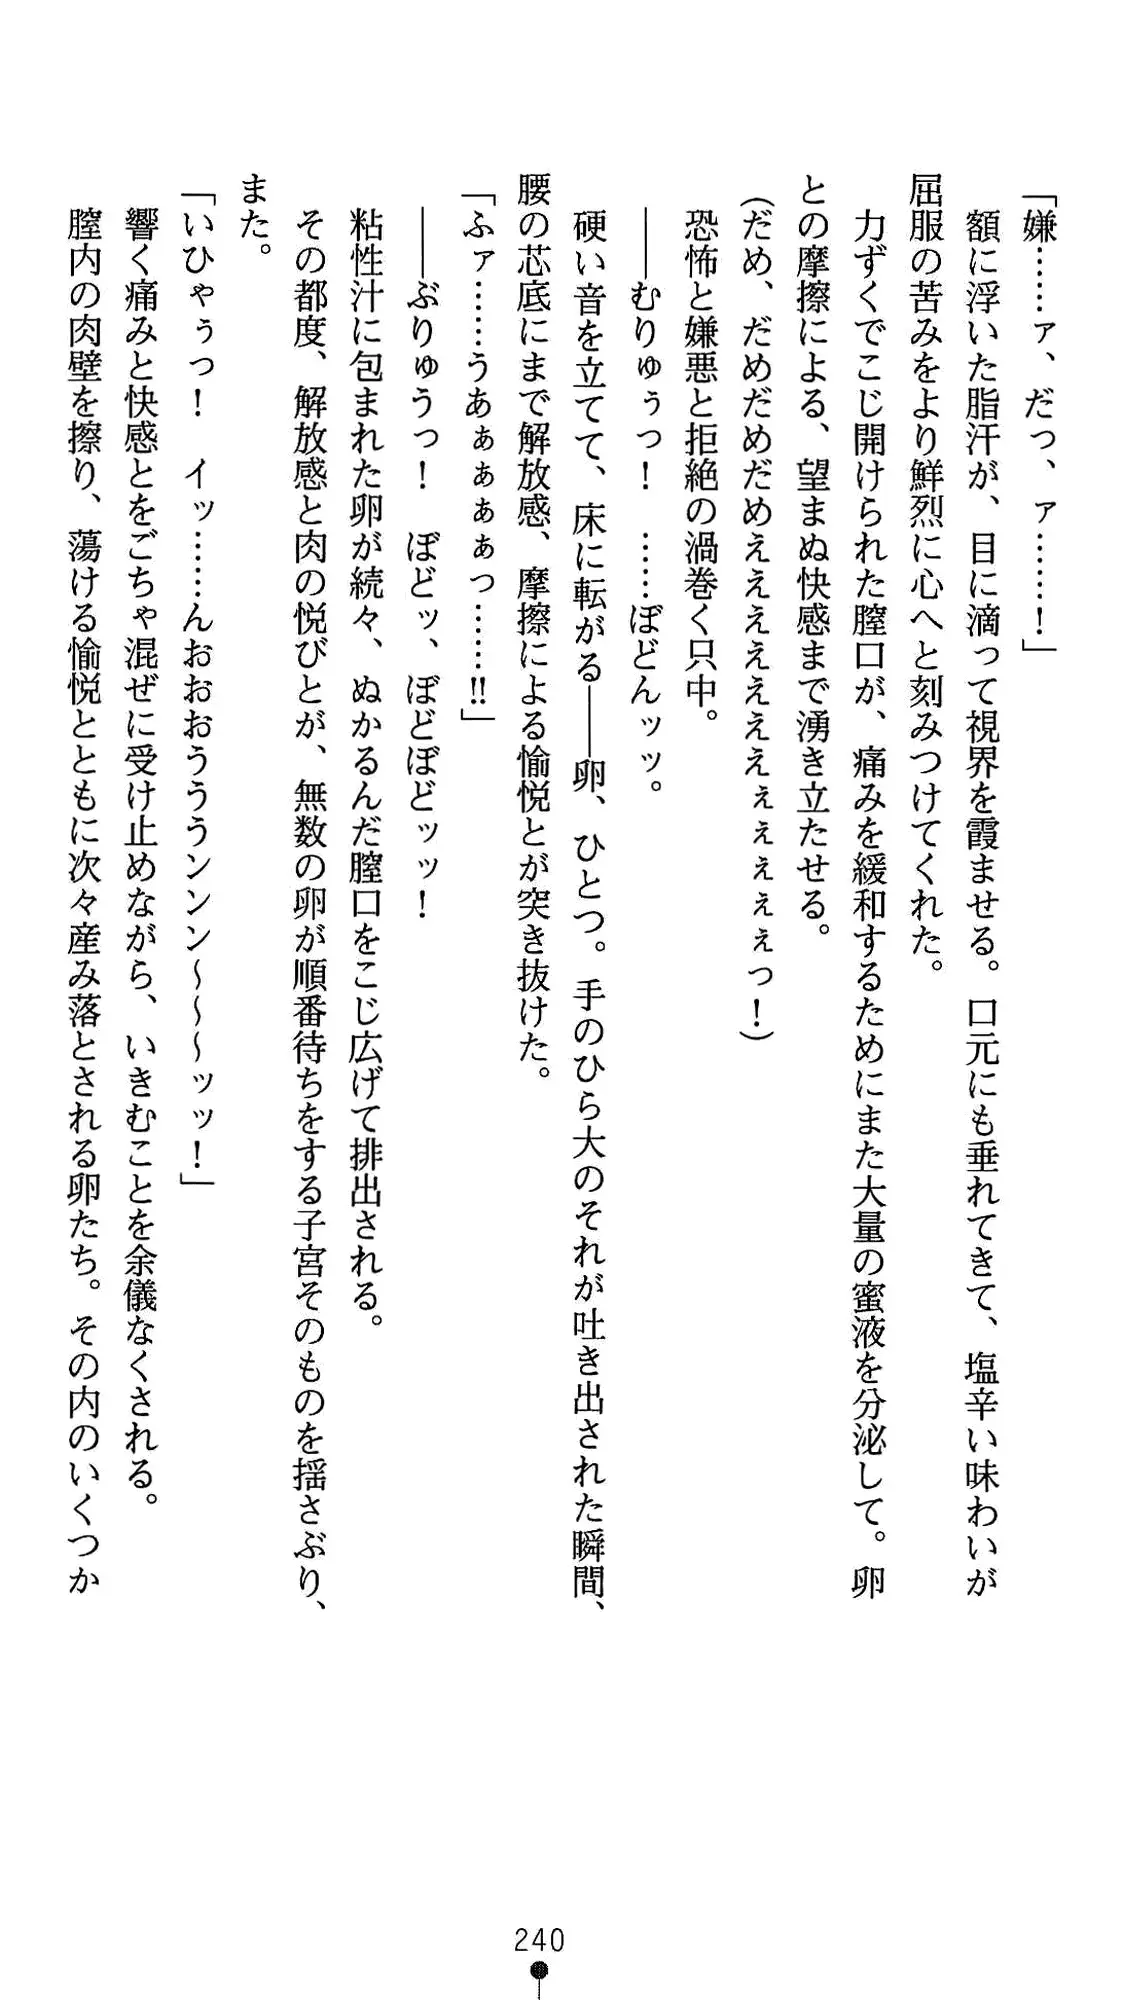 「嫌……ァ、だっ、ァ……！」
額に浮いた脂汗が、目に滴って視界を霞ませる。口元にも垂れてきて、塩辛い味わいが
屈服の苦みをより鮮烈に心へと刻みつけてくれた。
力ずくでこじ開けられた膣口が、痛みを緩和するためにまた大量の蜜液を分泌して。卵
との摩擦による、望まぬ快感まで湧き立たせる。
(だめ、だめだめだめえええええええぇぇぇぇぇっ！)
恐怖と嫌悪と拒絶の渦巻く只中。
――むりゅぅっ！　……ぼどんッッ。
硬い音を立てて、床に転がる――卵、ひとつ。手のひら大のそれが吐き出された瞬間、
腰の芯底にまで解放感、摩擦による愉悦とが突き抜けた。
「ふァ……うあぁぁぁぁっ……!!」
――ぶりゅうっ！　ぼどッ、ぼどぼどッッ！
粘性汁に包まれた卵が続々、ぬかるんだ膣口をこじ広げて排出される。
その都度、解放感と肉の悦びとが、無数の卵が順番待ちをする子宮そのものを揺さぶり、
また。
「いひゃぅっ！　イッ……んおおおうううンンン～～～ッッ！」
響く痛みと快感とをごちゃ混ぜに受け止めながら、いきむことを余儀なくされる。
膣内の肉壁を擦り、蕩ける愉悦とともに次々産み落とされる卵たち。その内のいくつか
240